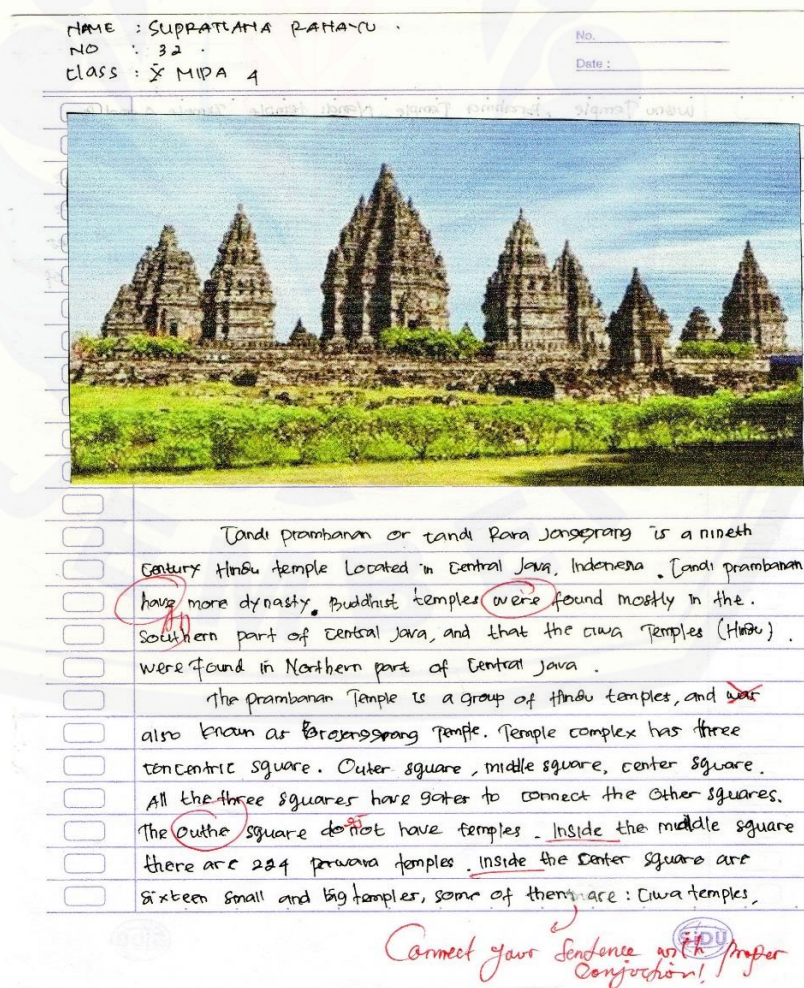 NAME : SUPRATIANA RAHAYU .
NO : 32 .
Class : X MIPA 4
No.
Date :
Candi prambanan or candi Rara Jonggrang is a nineth
Century Hindu temple Located in Central Java, Indonesia . Candi prambanan
have more dynasty. Buddhist temples were found mostly in the .
Southern part of Central Java, and that the ciwa Temples (Hindu) .
were found in Northern part of Central Java .
The prambanan Temple is a group of Hindu temples, and war
also known as Temple. Temple complex has three
concentric square . Outer square , middle square, center square .
All the three squares have gates to connect the other squares.
The Outhe square do not have temples . Inside the middle square
there are 224 perwara temples . inside the center square are
sixteen small and big temples, some of them are : Ciwa temples,
Connect your Sentence with proper
Conjuction!
SiDU